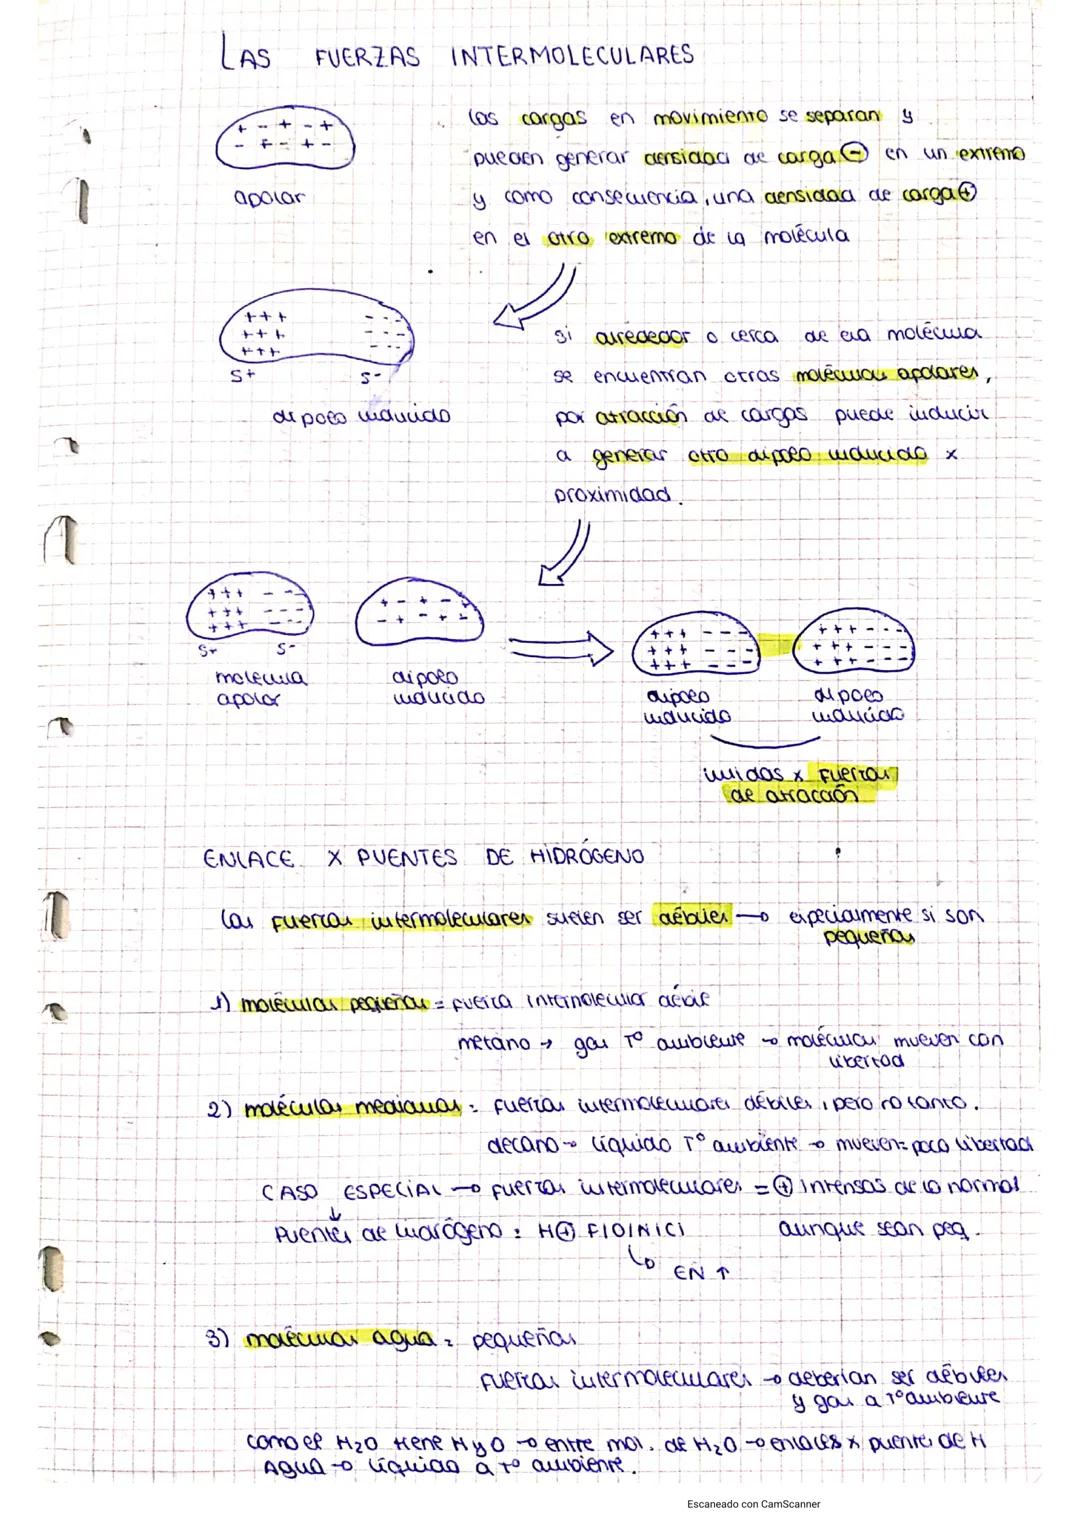 LAS FUERZAS INTERMOLECULARES
+ - + - +
- + - + -
apolar
las cargas en movimiento se separan y
pueden generar densidad de carga ⊖ en un extremo
y como consecuencia, una densidad de carga ⊕
en el otro extremo de la molécula
+++ ---
+++ ---
+++ ---
S+ S-
dipolo inducido
si alrededor o cerca de ela molécula
se encuentran otras moléculas apolares,
por atracción de cargas puede inducir
a generar otro dipolo inducido x
proximidad.
+++ ---
+++ ---
+++ ---
S+ S-
molecula
apolar
+ - + - +
- + - + -
dipolo
inducido
+++ ---
+++ ---
+++ ---
dipolo
inducido
+++ ---
+++ ---
+++ ---
dipolo
inducido
unidas x fuerzas
de atracción
ENLACE X PUENTES DE HIDRÓGENO
las fuerzas intermoleculares suelen ser débiles → especialmente si son
pequeñas
1) moléculas pequeñas = fuerza intermolecular débil
metano → gas Tº ambiente → moléculas mueven con
libertad
2) moléculas medianas = fuerzas intermoleculares débiles, pero no tanto.
decano → líquido Tº ambiente → mueven = poca libertad
CASO ESPECIAL → fuerzas intermoleculares = ⊕ intensas de lo normal
↓
Puentes de hidrógeno : H ⊕ F|O|N|Cl aunque sean peq.
↳ EN ↑
3) moléculas agua = pequeñas
fuerzas intermoleculares → deberían ser débiles
y gas a Tº ambiente
como el H₂O tiene H y O → entre mol. de H₂O → enlaces x puente de H
AGUA → líquida a Tº ambiente.
Escaneado con CamScanner